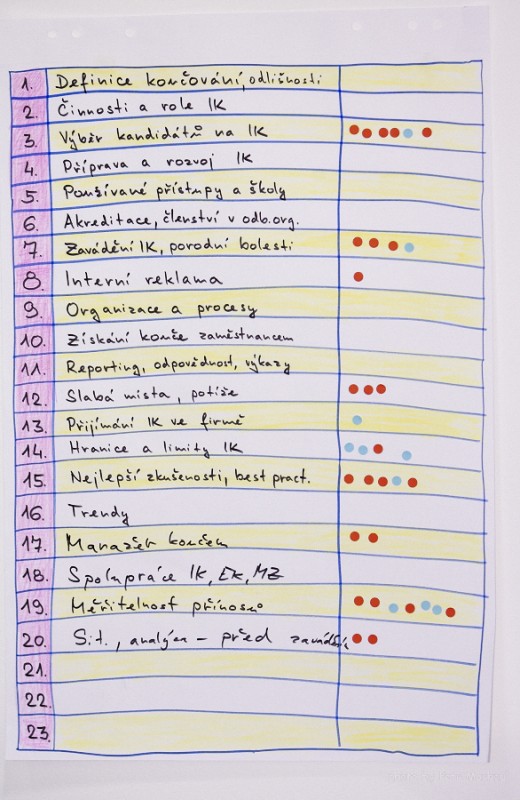 1. Definice koučování, odlišnosti
2. Činnosti a role IK
3. Výběr kandidátů na IK
4. Příprava a rozvoj IK
5. Používané přístupy a školy
6. Akreditace, členství v odb.org.
7. Zavádění IK, porodní bolesti
8. Interní reklama
9. Organizace a procesy
10. Získání kouče zaměstnancem
11. Reporting, odpovědnost, výkazy
12. Slabá místa, potíže
13. Přijímání IK ve firmě
14. Hranice a limity IK
15. Nejlepší zkušenosti, best pract.
16. Trendy
17. Manažer koučem
18. Spolupráce IK, EK, MZ
19. Měřitelnost přínosů
20. Sit., analýza - před
21.
22.
23.